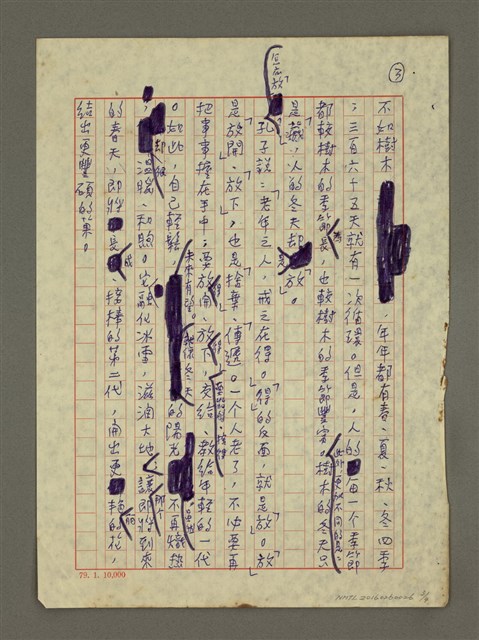 ③
不如樹木，年年都有春、夏、秋、冬四季
；三百六十五天就有一次循環。但是，人的每一個季節
都較樹木的季節長，也較樹木的季節豐富。樹木的冬天只
是「藏」，人的冬天却「放」。
孔子說：「老年之人，戒之在得。」「得」的反面，就是「放」。「放」
是「放開」、「放下」，也是「捨棄」、「傳遞」。一個人老了，不必要再
把事事握在手中；要放開、放下，交給、教給年輕的一代
。如此，自己輕鬆，未來有望。冬天的陽光不再熾熱
，却溫暖、和煦。它融化冰雪，滋潤大地；讓即將到來
的春天，即將成長、接棒的第二代，開出更艷麗的花，
結出更豐碩的果。
79. 1. 10,000